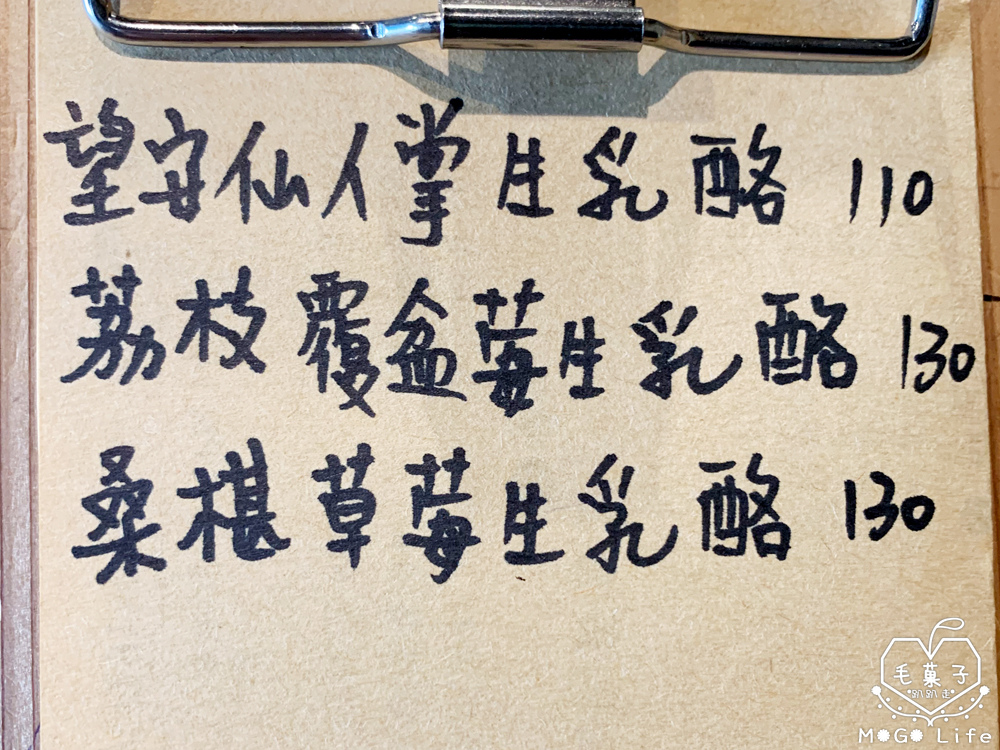 望安仙人掌生乳酪 110
荔枝覆盆莓生乳酪 130
桑椹草莓生乳酪 130
毛菓子
趴趴走
MOGO Life